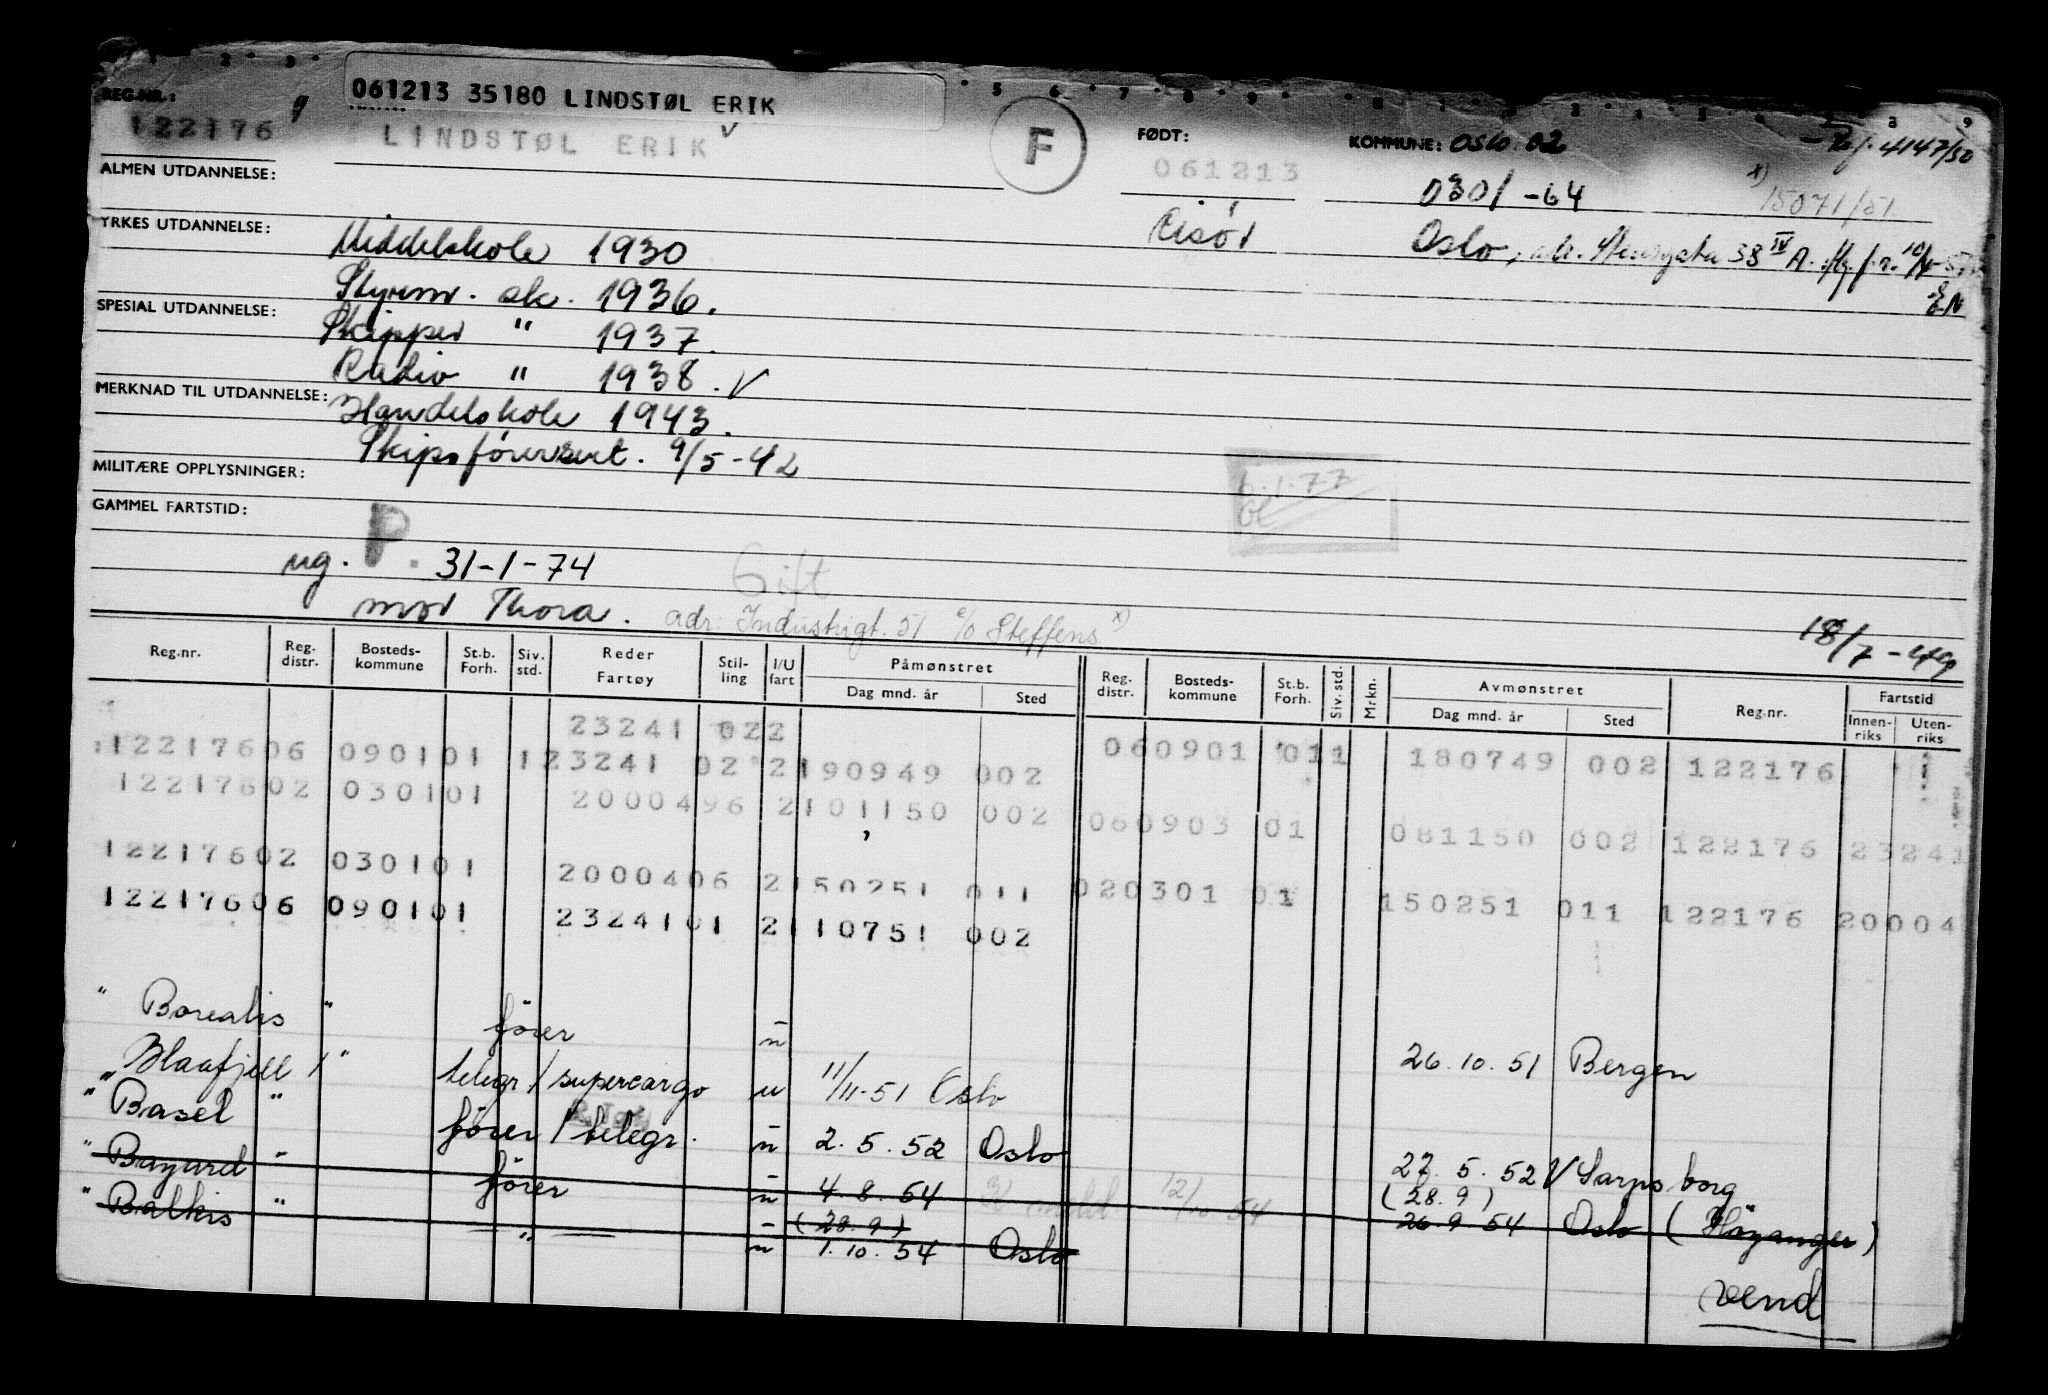 061213 35180 LINDSTØL ERIK
REG.NR.:
122176
LINDSTØL ERIK
F
FØDT:
061213
Risør
KOMMUNE: Oslo. 02
4147/50
0301 - 64
x) 15071/51
Oslo, 38 IV
EN
ALMEN UTDANNELSE:
YRKES UTDANNELSE:
Middelskole 1930
Styrm. sk. 1936.
SPESIAL UTDANNELSE:
Skipper " 1937.
Radio " 1938. V
MERKNAD TIL UTDANNELSE:
Handelskole 1943.
Skipsförersert. 9/5-42
MILITÆRE OPPLYSNINGER:
6.1.77
GAMMEL FARTSTID:
ug. P. 31-1-74
Gift
mor Thora. adr: Industrigt. 51 c/o Steffens x)
18/7-49
Reg.nr. Reg. distr. Bosteds-kommune St.b. Forh. Siv. std. Reder Fartøy Stil-ling I/U fart Påmønstret Dag mnd. år Sted Reg. distr. Bosteds-kommune St.b. Forh. Siv. std. Mrkn. Avmønstret Dag mnd. år Sted Reg.nr. Fartstid Innen-riks Uten-riks
23241 022 060901 011 180749 002 122176
12217606 090101 123241 02 2190949 002
12217602 030101 2000496 2101150 002 060903 01 081150 002 122176 23241
12217602 030101 2000406 2150251 011 020301 01 150251 011 122176 20004
12217606 090101 2324101 2110751 002
" Borealis " förer u 26.10.51 Bergen
" Haafjell / " telegr / supercargo u 11/11-51 Oslo
" Basel " förer / telegr. u 2.5.52 Oslo 27.5.52 V Sarpsborg
" Bayard " förer u 4.8.54 12/10 54 (28.9) 26.9 54 Oslo (Høyanger)
" Balkis " — " — u (28.9) 1.10.54 Oslo
vend